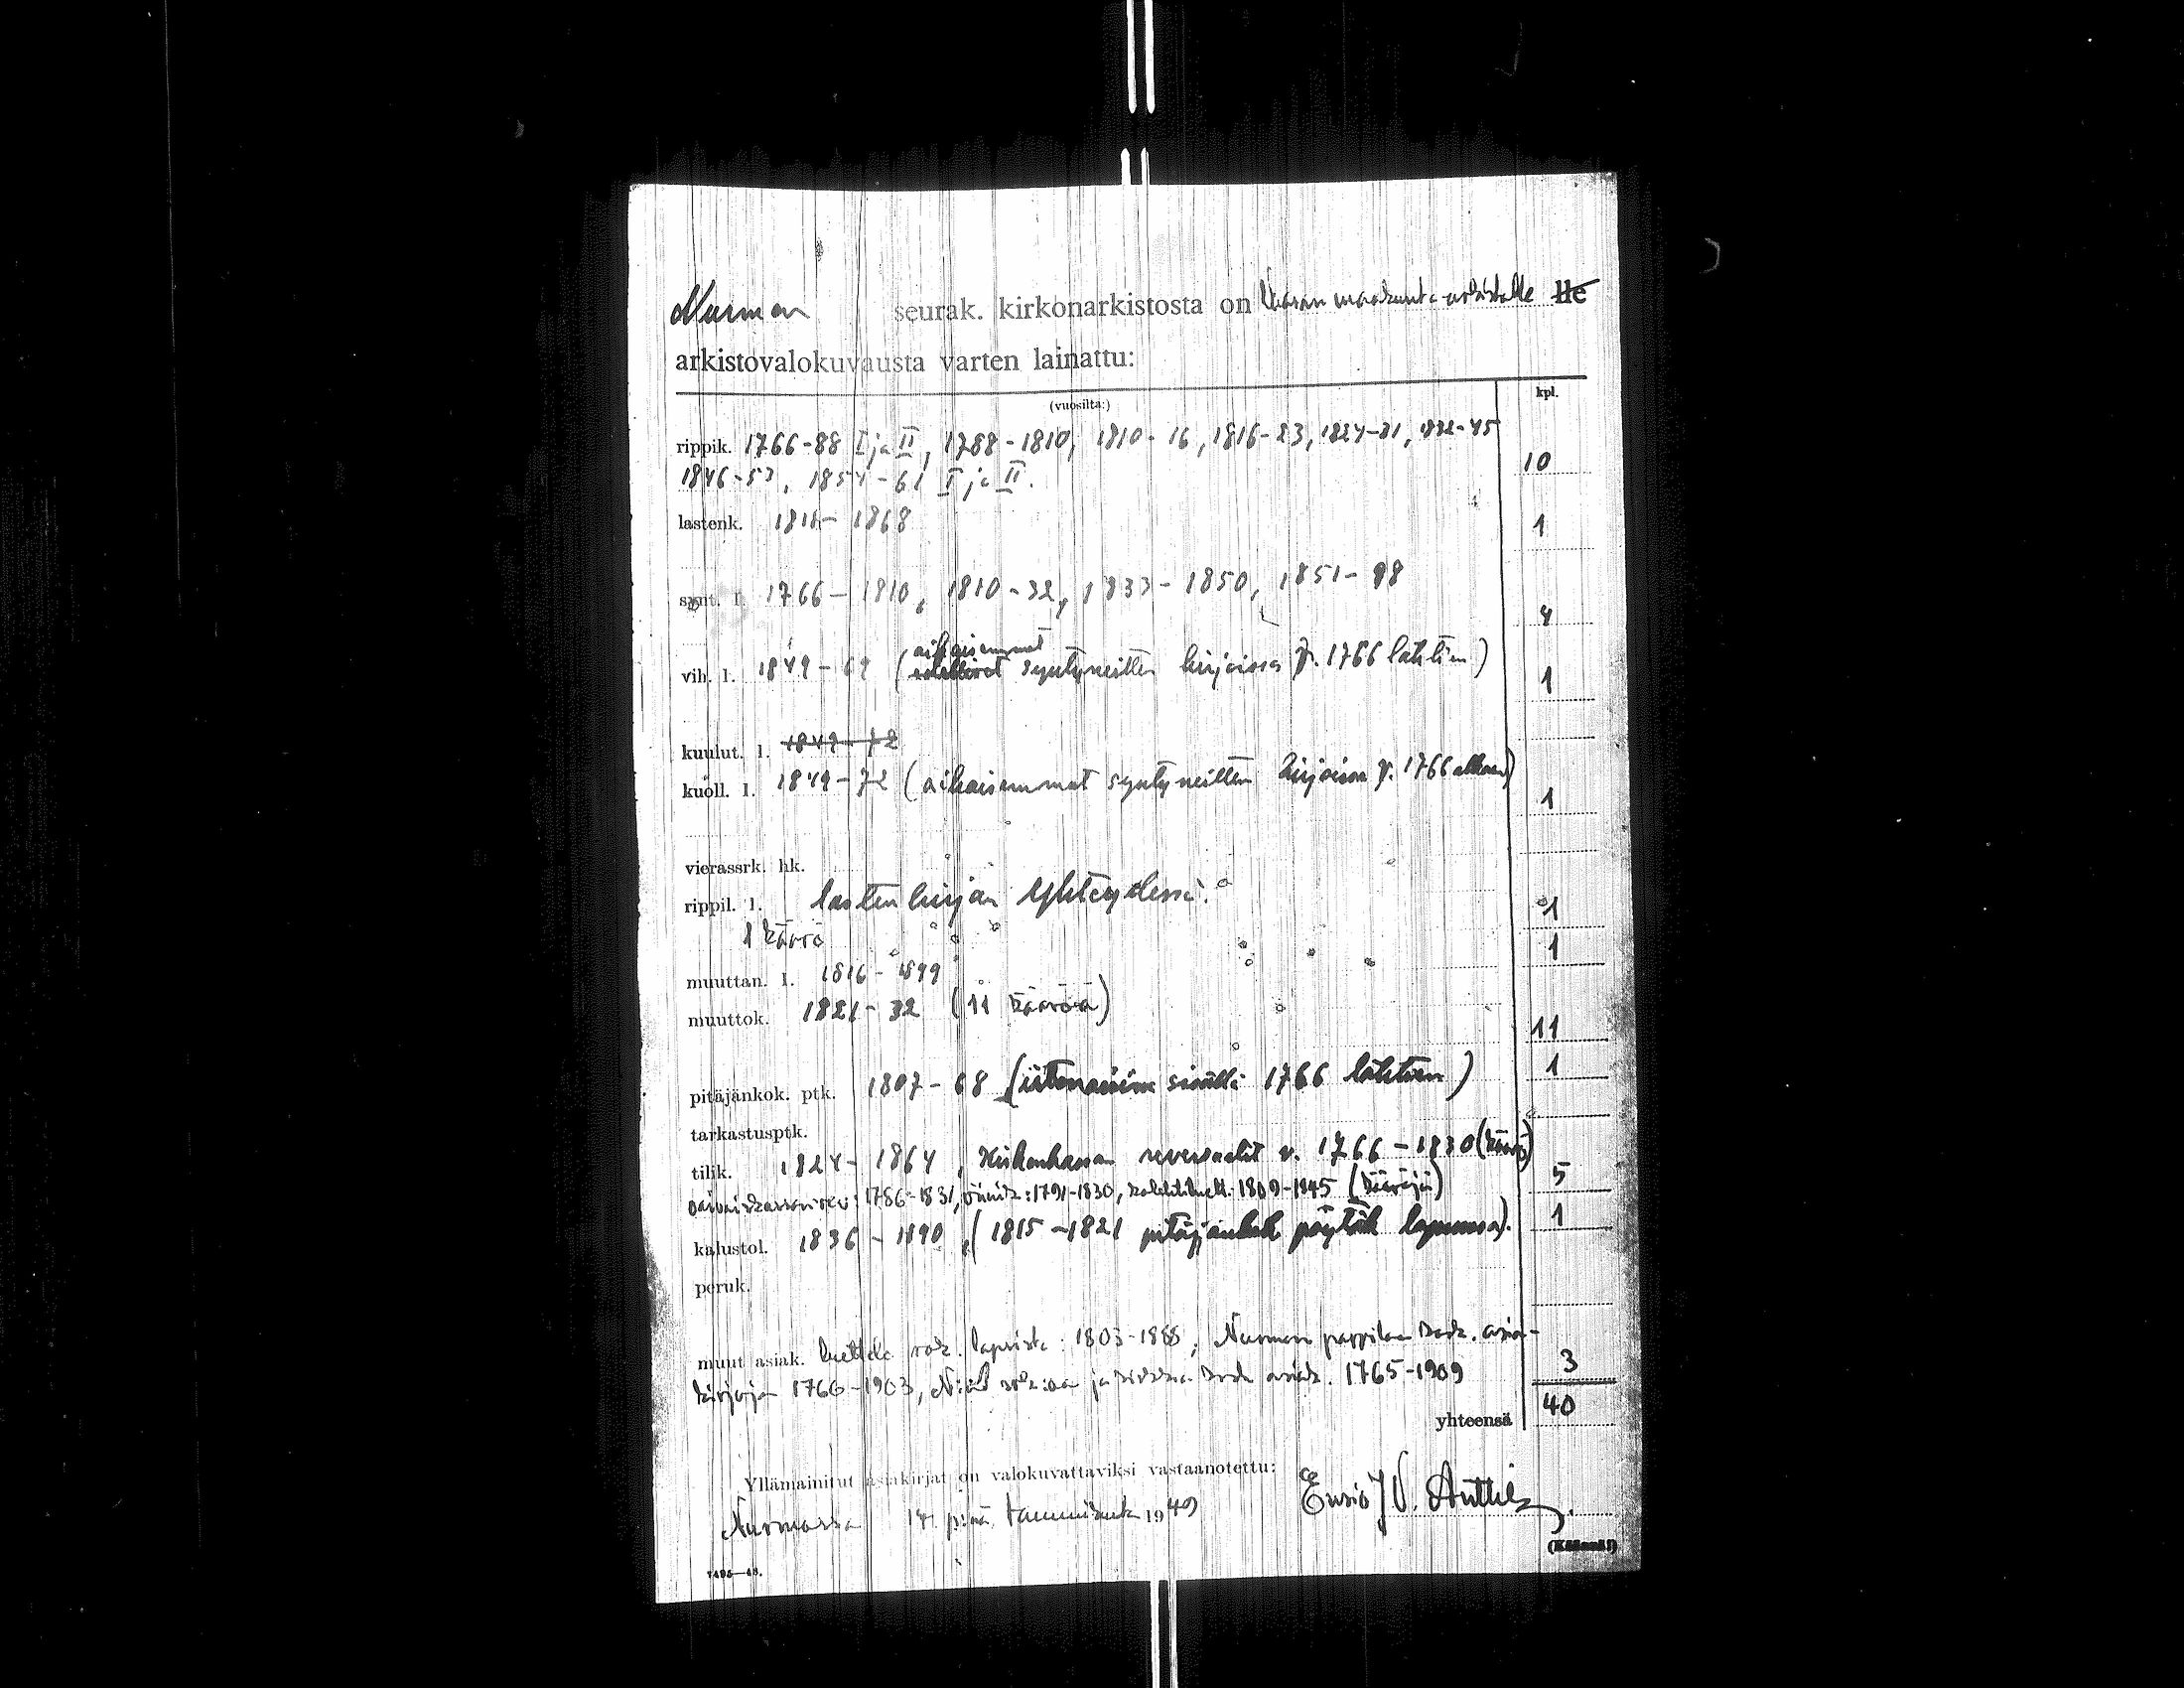 Nurmon seurak. kirkonarkistosta on Vaasan maakunta-arkistolle lle
arkistovalokuvausta varten lainattu:
(vuosilta:) kpl.
rippik. 1766-88 I ja II, 1788-1810, 1810-16, 1816-23, 1824-31, 1832-45
1846-53, 1854-61 I ja II. 10
lastenk. 1811-1868 1
synt. l. 1766-1810, 1810-32, 1833-1850, 1851-98 4
aikaisemmat
vih. l. 1849-69 ( syntyneitten kirjoissa v. 1766 lähtien) 1
kuulut. l. 1849-72
kuoll. l. 1849-72 (aikaisemmat syntyneitten kirjoissa v. 1766 alkaen) 1
vierassrk. hk.
rippil. l. lastenkirjan yhteydessä. 1
1 käärö 1
muuttan. l. 1816-1899
muuttok. 1821-32 (11 kääröä) 11
pitäjänkok. ptk. 1807-68 ( 1766 lähtien) 1
tarkastusptk.
tilik. 1824-1864, Kirkonkassan reversaalit v. 1766-1830 (käärö) 5
1786-1831, 1791-1830, 1809-1845 (kääröjä)
kalustol. 1836-1890, (1815-1821 pitäjänkok pöytäk lopussa). 1
peruk.
muut asiak. Luettelo rok. lapsista: 1803-1888; Nurmon pappilan kosk. asia-
kirjoja 1766-1903, ja kosk asiak. 1765-1909 3
yhteensä 40
Yllämainitut asiakirjat on valokuvattaviksi vastaanotettu:
Nurmossa 14 p:nä tammikuuta 1949 Ensio J V. Anttila.
(Käännä!)
7495—48.